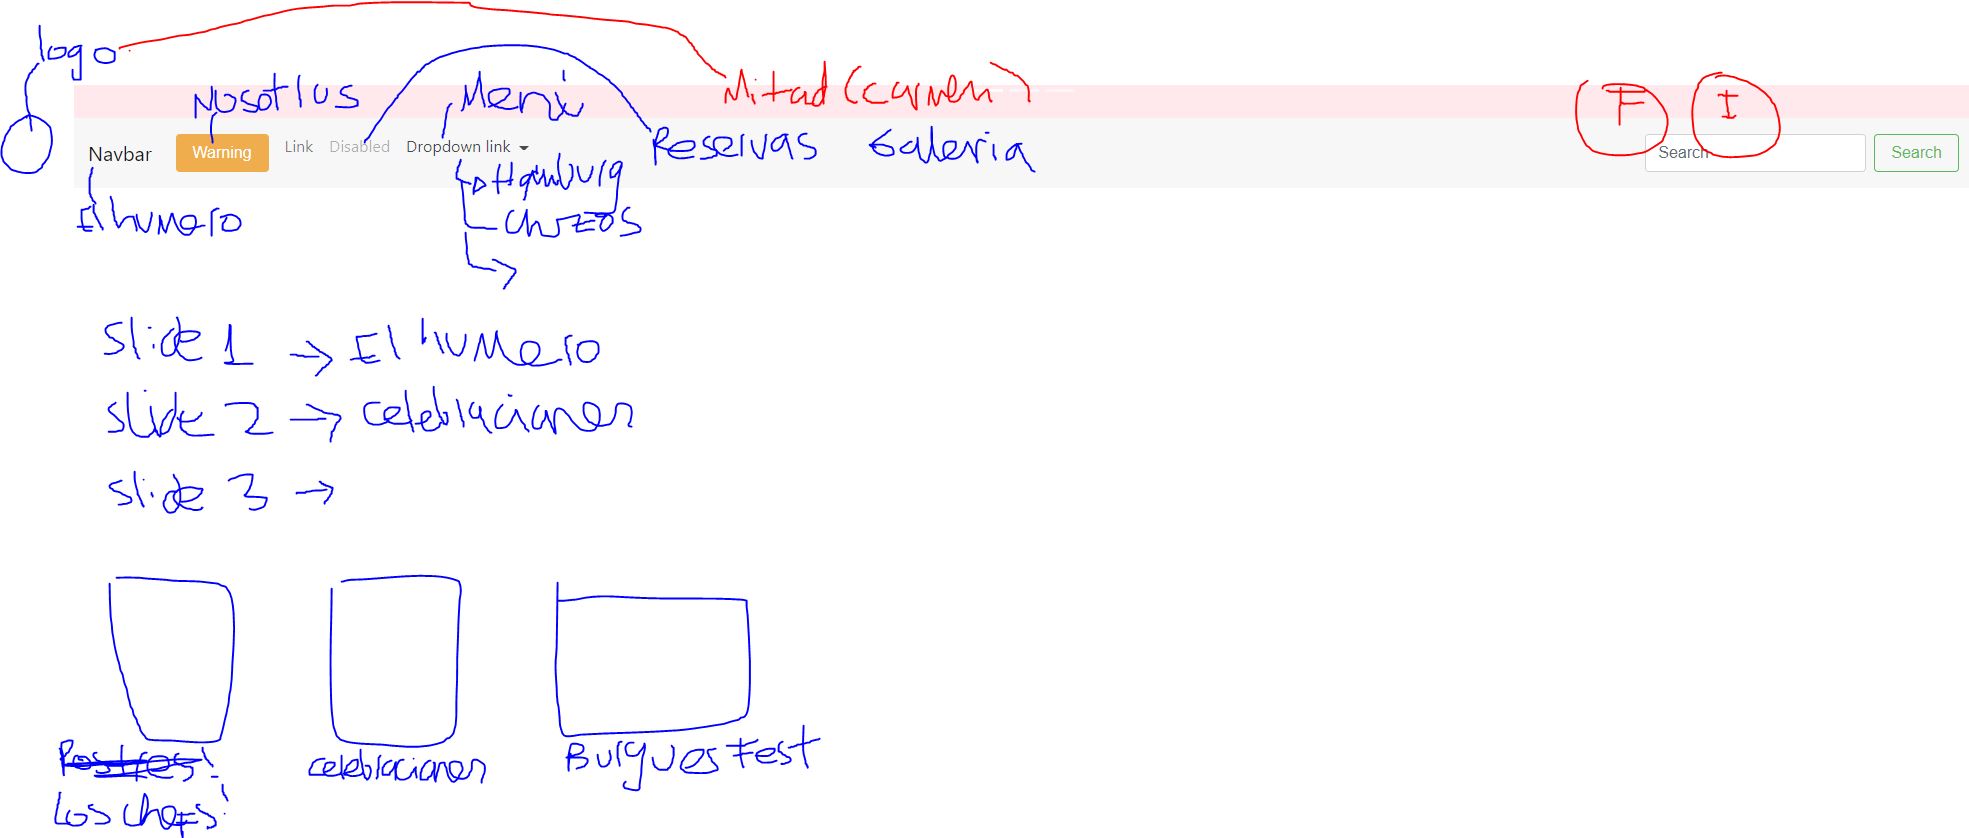 logo
Nosotros Menú Mitad (carmen) F I
Navbar Warning Link Disabled Dropdown link Reservas Galeria Search Search
Hamburg
El humero Chuzos
Slide 1 → El humero
slide 2 → celebraciones
slide 3 →
Postres!
celebraciones Burgues Fest
Los chefs!